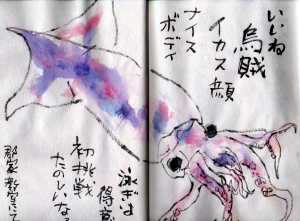 いいね
烏賊
イカス顔
ナイス
ボディ
泳ぎは
得意
初挑戦
たのしいな
郡家教室にて